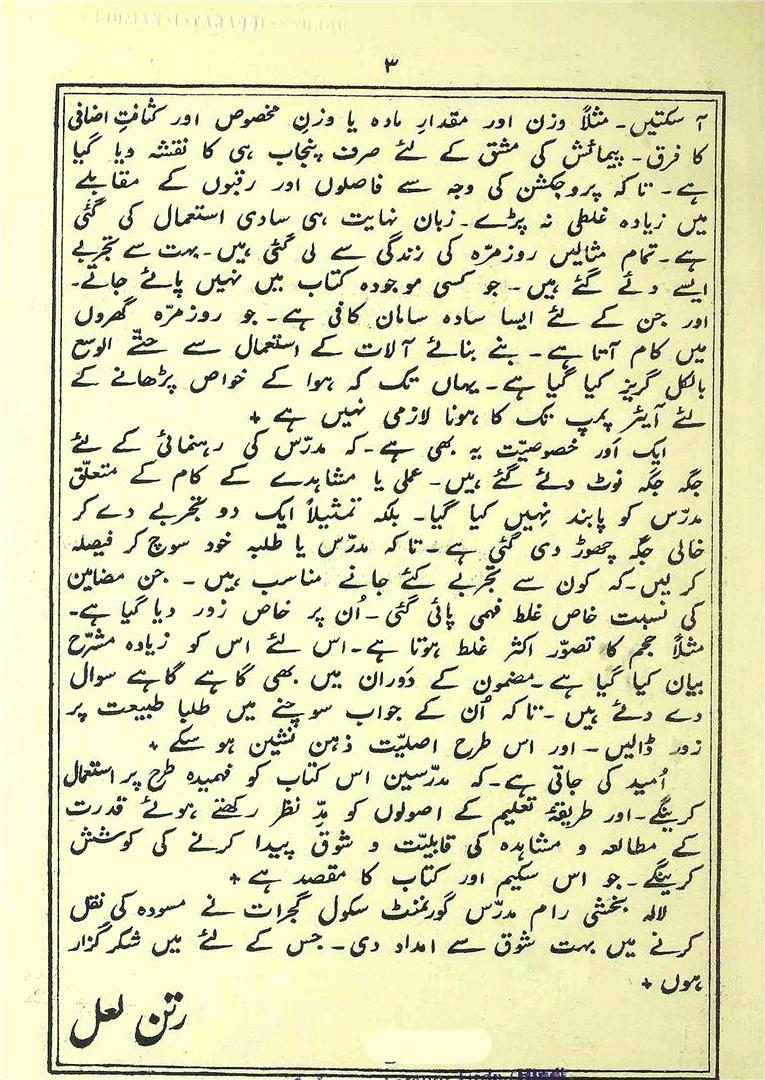 ۳
آ سکتیں۔ مثلاً وزن اور مقدارِ مادہ یا وزنِ مخصوص اور کثافتِ اضافی
کا فرق۔ پیمائش کی مشق کے لئے صرف پنجاب ہی کا نقشہ دیا گیا
ہے۔ تاکہ پروجکشن کی وجہ سے فاصلوں اور رقبوں کے مقابلے
میں زیادہ غلطی نہ پڑے۔ زبان نہایت ہی سادی استعمال کی گئی
ہے۔ تمام مثالیں روزمرّہ کی زندگی سے لی گئی ہیں۔ بہت سے تجربے
ایسے دئے گئے ہیں۔ جو کسی موجودہ کتاب میں نہیں پائے جاتے۔
اور جن کے لئے ایسا سادہ سامان کافی ہے۔ جو روزمرّہ گھروں
میں کام آتا ہے۔ بنے بنائے آلات کے استعمال سے حتّے الوسع
بالکل گریز کیا گیا ہے۔ یہاں تک کہ ہوا کے خواص پڑھانے کے
لئے آیئر پمپ تک کا ہونا لازمی نہیں ہے +
ایک اَور خصوصیّت یہ بھی ہے۔ کہ مدرّس کی رہنمائی کے لئے
جگہ جگہ نوٹ دئے گئے ہیں۔ عملی یا مشاہدے کے کام کے متعلّق
مدرّس کو پابند نہیں کیا گیا۔ بلکہ تمثیلاً ایک دو تجربے دے کر
خالی جگہ چھوڑ دی گئی ہے۔ تاکہ مدرّس یا طلبہ خود سوچ کر فیصلہ
کر لیں۔ کہ کون سے تجربے کئے جانے مناسب ہیں۔ جن مضامین
کی نسبت خاص غلط فہمی پائی گئی۔ اُن پر خاص زور دیا گیا ہے۔
مثلاً حجم کا تصوّر اکثر غلط ہوتا ہے۔ اس لئے اس کو زیادہ مشرّح
بیان کیا گیا ہے۔ مضمون کے دَوران میں بھی گاہے گاہے سوال
دے دئے ہیں۔ تاکہ اُن کے جواب سوچنے میں طلبا طبیعت پر
زور ڈالیں۔ اور اس طرح اصلیّت ذہن نشین ہو سکے +
اُمید کی جاتی ہے۔ کہ مدرّسین اس کتاب کو فہمیدہ طرح پر استعمال
کرینگے۔ اور طریقۂ تعلیم کے اصولوں کو مدِّ نظر رکھتے ہوئے قدرت
کے مطالعہ و مشاہدہ کی قابلیّت و شوق پیدا کرنے کی کوشش
کرینگے۔ جو اس سکیم اور کتاب کا مقصد ہے +
لالہ بخشی رام مدرّس گورنمنٹ سکول گجرات نے مسودہ کی نقل
کرنے میں بہت شوق سے امداد دی۔ جس کے لئے میں شکرگزار
ہوں +
رتن لعل